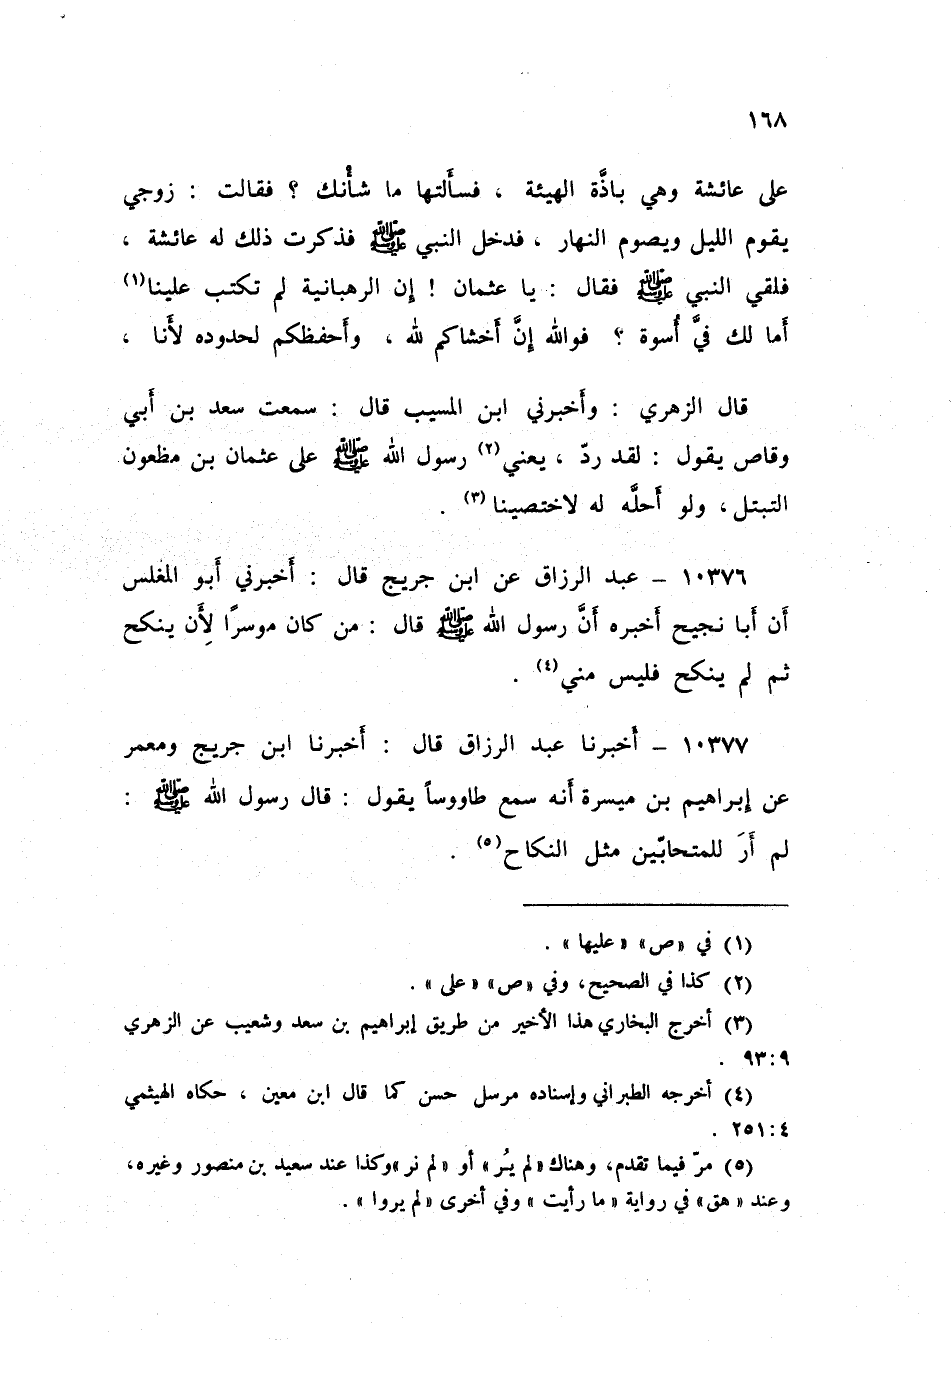 ١٦٨
على عائشة وهي باذَّة الهيئة ، فسأَلتها ما شأْنك ؟ فقالت : زوجي
يقوم الليل ويصوم النهار ، فدخل النبي ﷺ فذكرت ذلك له عائشة ،
فلقي النبي ﷺ فقال : يا عثمان ! إن الرهبانية لم تكتب علينا(١)
أَما لك فيَّ أُسوة ؟ فوالله إنَّ أَخشاكم لله ، وأَحفظكم لحدوده لأَنا ،
قال الزهري : وأَخبرني ابن المسيب قال : سمعت سعد بن أَبي
وقاص يقول : لقد ردّ ، يعني(٢) رسول الله ﷺ على عثمان بن مظعون
التبتل ، ولو أَحلَّه له لاختصينا(٣) .
١٠٣٧٦ – عبد الرزاق عن ابن جريج قال : أَخبرني أَبو المغلس
أَن أَبا نجيح أَخبره أَنَّ رسول الله ﷺ قال : من كان موسرًا لِأَن ينكح
ثم لم ينكح فليس مني(٤) .
١٠٣٧٧ – أَخبرنا عبد الرزاق قال : أَخبرنا ابن جريج ومعمر
عن إبراهيم بن ميسرة أَنه سمع طاووساً يقول : قال رسول الله ﷺ :
لم أَرَ للمتحابّين مثل النكاح(٥) .
(١) في «ص» «عليها» .
(٢) كذا في الصحيح، وفي «ص» «على» .
(٣) أخرج البخاري هذا الأخير من طريق إبراهيم بن سعد وشعيب عن الزهري
٩٣:٩ .
(٤) أخرجه الطبراني وإسناده مرسل حسن كما قال ابن معين ، حكاه الهيثمي
٢٥١:٤ .
(٥) مرّ فيما تقدم، وهناك «لم يُر» أو «لم نر» وكذا عند سعيد بن منصور وغيره،
وعند «هق» في رواية «ما رأيت» وفي أخرى «لم يروا» .